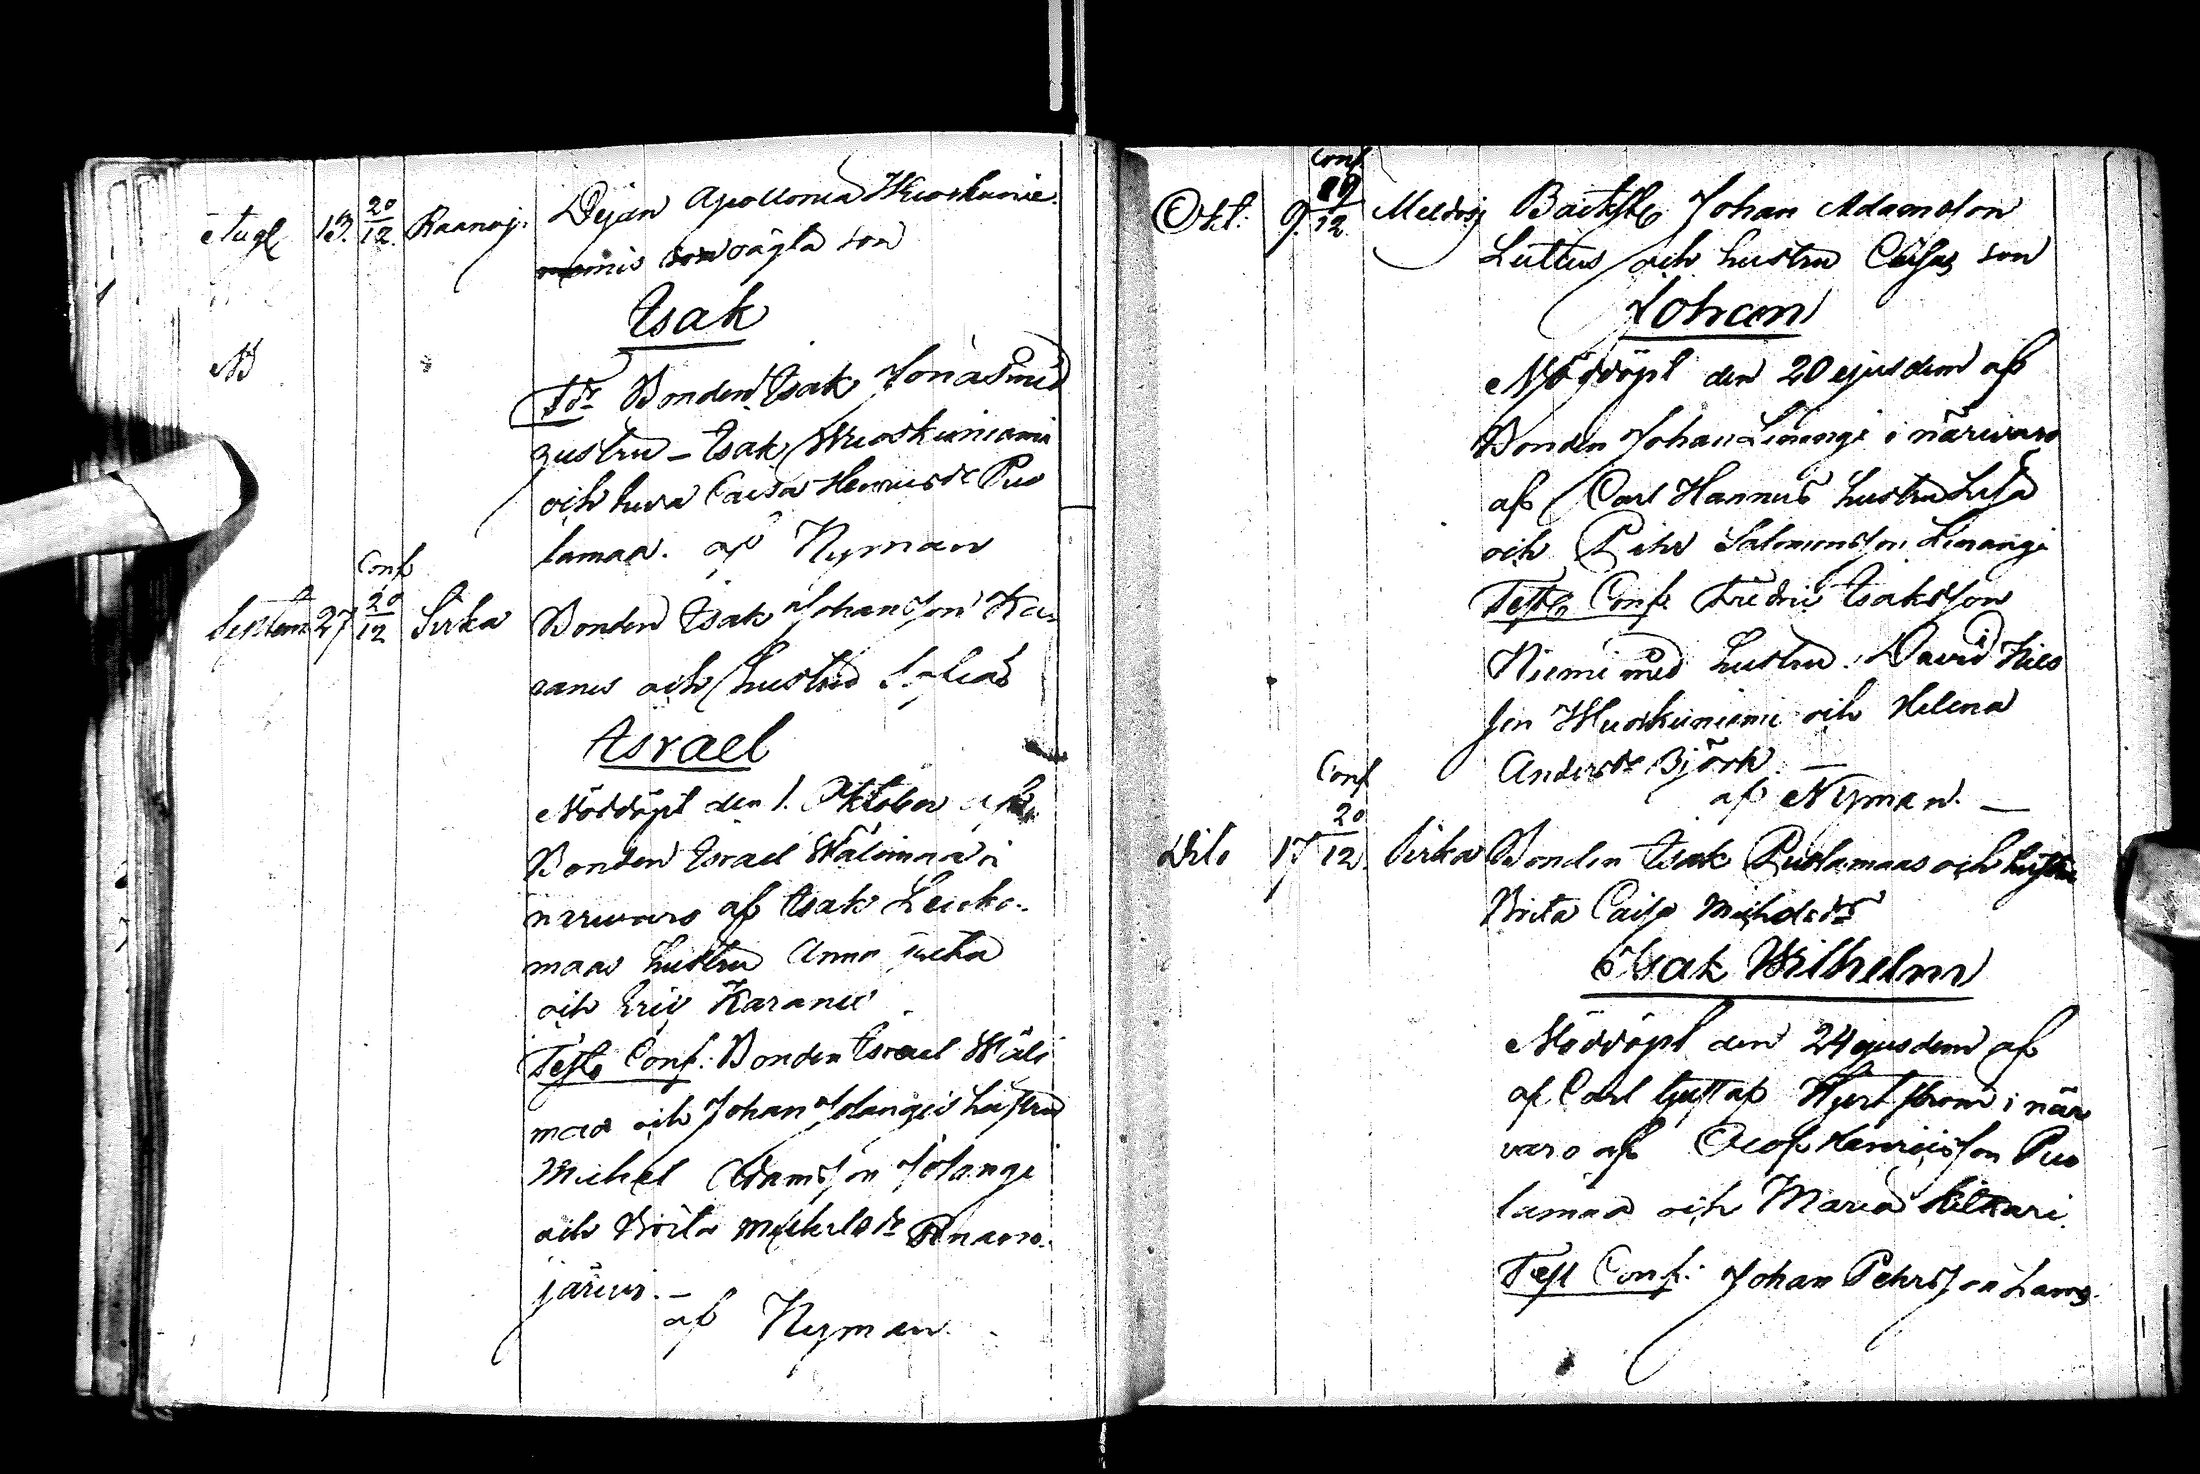 Augt 13. 20/12. Raanuj. Pigan Apollonia Kuoskunie
miemis oägta son
Isak
Tr Bonden Isak Jonas med
hustru – Isak Kuoskuniemi
och Caisa Henricsdr Puo
lamaa. af Nyman
NB
Conf
Septem 27 20/12 Sirka Bonden Isak Johansson Ka
ranes och hustru Sofias
Israel
Nöddöpt den 1. Oktober af
Bonden Israel Wälimaa i
närwaro af Isak Leinko-
maas hustru Anna Greta
och Eric Karanes
Test. Conf. Bonden Israel Wäli
maa och Johan Jolangis hustru
Michel Adamsson Jolangi
och Brita Michelsdr Raanu-
järwi. –
af Nyman.
Conf
Okt. 9. 19/12. Meldosj Backst. Johan Adamsson
Luttus och hustru Caisas son
Johan
Nöddöpt den 20 ejusdem af
Bonden Johan Liwangi i närwaro
af Carl Hannus hustru Lisa
och Pehr Salomonsson Liwangi
Test. Conf. Fredric Isaksson
Niemi med hustru. David Nils
son Kuoskuniemi och Helena
Andersdr Björk. —
af Nyman. —
Conf
Dito 17 20/12. Sirka Bonden Isak Puolamaas och hustru
Brita Caisa Michelsdrs
Isak Wilhelm
Nöddöpt den 24 ejusdem af
af Carl Gustaf Hjertström i när
varo af Olof Henricsson Puo
lamaa och Maria Kilkari.
Test Conf: Johan Pehrsson Lang.